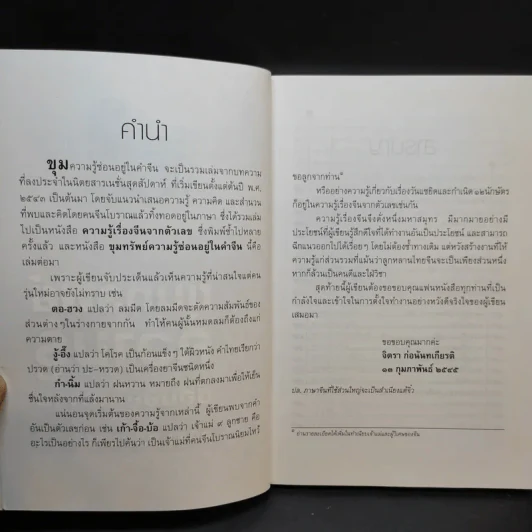 คำนำ
ขุมความรู้ซ่อนอยู่ในคำจีน จะเป็นรวมเล่มจากบทความ
ที่ลงประจำในนิตยสารเนชั่นสุดสัปดาห์ ที่เริ่มเขียนตั้งแต่ต้นปี พ.ศ.
๒๕๔๓ เป็นต้นมา โดยจับแนวนำเสนอความรู้ ความคิด และสำนวน
ที่พบและคิดโดยคนจีนโบราณแล้วทิ้งทอดอยู่ในภาษา ซึ่งได้รวมเล่ม
ไปเป็นหนังสือ ความรู้เรื่องจีนจากตัวเลข ซึ่งพิมพ์ซ้ำไปหลาย
ครั้งแล้ว และหนังสือ ขุมทรัพย์ความรู้ซ่อนอยู่ในคำจีน นี้คือ
เล่มต่อมา
เพราะผู้เขียนจับประเด็นแล้วเห็นความรู้ที่น่าสนใจแต่คน
รุ่นใหม่อาจยังไม่ทราบ เช่น
ตอ-ฮวง แปลว่า ลมมีด โดยลมมีดจะตัดความสัมพันธ์ของ
ส่วนต่างๆในร่างกายจากกัน ทำให้คนผู้นั้นหมดลมก็ต้องถึงแก่
ความตาย
งู้-อึ๊ง แปลว่า โคโรค เป็นก้อนแข็งๆ ใต้ผิวหนัง คำไทยเรียกว่า
ปรวด (อ่านว่า ปะ-หรวด) เป็นเครื่องยาจีนชนิดหนึ่ง
กำ-นิ้ม แปลว่า ฝนหวาน หมายถึง ฝนที่ตกลงมาเพื่อให้เย็น
ชื่นใจหลังจากที่แล้งมานาน
แน่นอนจุดเริ่มต้นของความรู้จากเหล่านี้ ผู้เขียนพบจากคำ
อันเป็นตัวเลขก่อน เช่น เก้า-จื๊อ-บ้อ แปลว่า เจ้าแม่ ๙ ลูกชาย คือ
อะไรเป็นอย่างไร ก็เพียรไปค้นว่า เป็นเจ้าแม่ที่คนจีนโบราณนิยมไหว้
ขอลูกจากท่าน*
หรืออย่างความรู้เกี่ยวกับเรื่องวันแซยิดและกำเนิด ๑๒นักษัตร
ก็อยู่ในความรู้เรื่องจีนจากตัวเลขเช่นกัน
ความรู้เรื่องจีนจึงดั่งหนึ่งมหาสมุทร มีมากมายอย่างมี
ประโยชน์ที่ผู้เขียนรู้สึกดีใจที่ได้ทำงานอันเป็นประโยชน์ และสามารถ
ฉีกแนวออกไปได้เรื่อยๆ โดยไม่ต้องซ้ำทางเดิม แต่หวังสร้างงานที่ให้
ความรู้แก่ส่วนรวมที่แม้นว่าลูกหลานไทยจีนจะเป็นเพียงส่วนหนึ่ง
หากก็ล้วนเป็นคนดีและใฝ่วิชา
สุดท้ายนี้ผู้เขียนต้องขอขอบคุณแฟนหนังสือทุกท่านที่เป็น
กำลังใจและเข้าใจในการตั้งใจทำงานอย่างหวังดีจริงใจของผู้เขียน
เสมอมา
ขอขอบคุณมากค่ะ
จิตรา ก่อนันทเกียรติ
๑๓ กุมภาพันธ์ ๒๕๔๕
ปล. ภาษาจีนที่ใช้ส่วนใหญ่จะเป็นสำเนียงแต้จิ๋ว